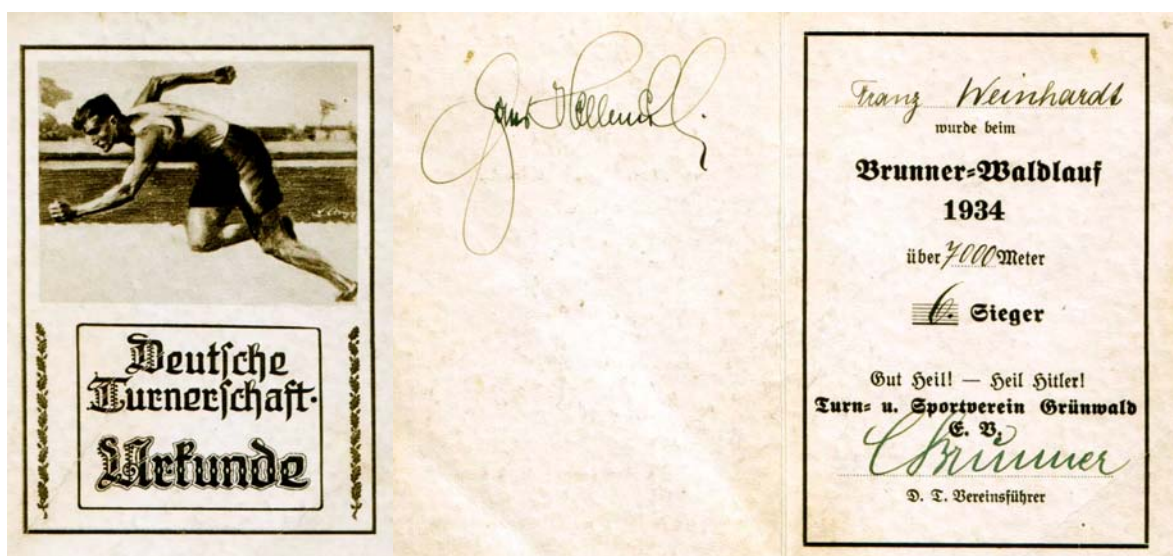 Deutsche
Turnerschaft.
Urkunde
Franz Weinhardt
wurde beim
Brunner-Waldlauf
1934
über 7000 Meter
6. Sieger
Gut Heil! — Heil Hitler!
Turn- u. Sportverein Grünwald
E. V.
Brunner
D. T. Vereinsführer